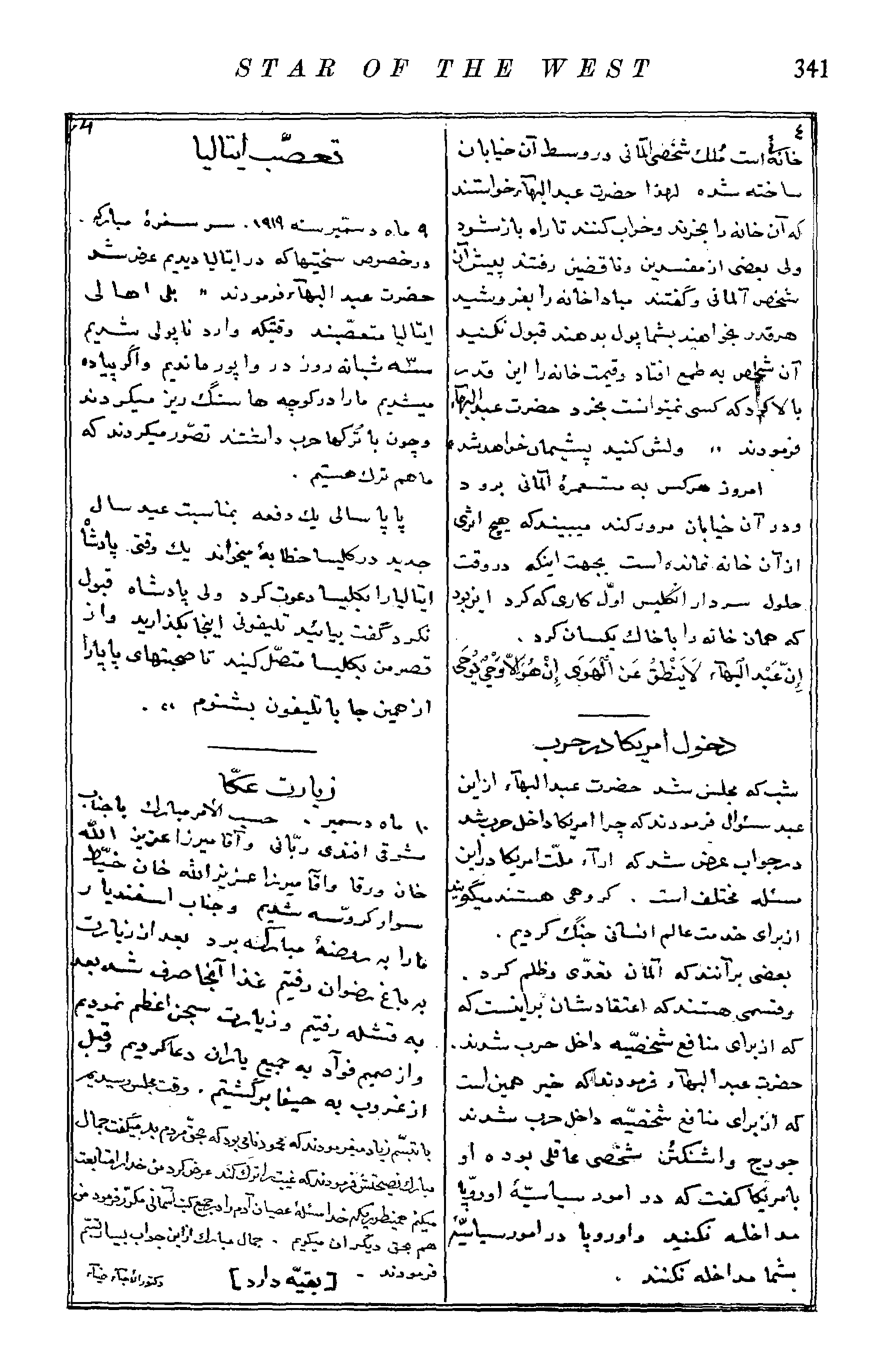 STAR OF THE WEST 341
٤
خانهٔ است مُلك شخصی المانی در وسط آن خیابان
ساخته شده لهذا حضرت عبدالبهآء خواستند
که آن خانه را بخرند و خراب کنند تا راه باز شود
ولی بعضی از مفسدین و ناقضین رفتند پیش آن
شخص آلمانی و گفتند مبادا خانه را بفروشید
هرقدر بخواهند بشما پول بدهند قبول نکنید
آن شخص به طمع افتاد و قیمت خانه را این قدر
بالا کرد که کسی نمیتوانست بخرد حضرت عبدالبهآء
فرمودند " ولش کنید پشیمان خواهد شد "
امروز هرکس به مستعمرهٔ المانی برود
و در آن خیابان مرور کند میبیند که هیچ اثری
از آن خانه نمانده است بجهت اینکه در وقت
حلول سردار انگلیس اوّل کاری که کرد این بود
که همان خانه را با خاك یکسان کرد .
إِنّ عَبْدالَبهآء لاَینْطِقُ عَن الْهَوَی إِنْ هُوَ اِلاّ وَحْیٌ یُوحَی
دخول امریکا در حرب
شب که مجلس شد حضرت عبدالبهآء ازاین
عبد سئوال فرمودند که چرا امریکا داخل حرب شد
در جواب عرض شد که ارآء ملّت امریکا در این
مسئله مختلف است . کروهی هستند میگویند
از برای خدمت عالم انسانی جنگ کردیم .
بعضی برآنند که آلمان تعدّی و ظلم کرد .
و قسمی هستند که اعتقادشان براینست که
که از برای منافع شخصیّه داخل حرب شدند .
حضرت عبدالبهآء فرمودند که خیر همین است
که از برای منافع شخصیّه داخل حرب شدند
جورج واشنگتُن شخصی عاقلی بوده او
بامریکا گفت که در امور سیاسیّهٔ اوروپا
مداخله نکنید و اوروپا در امور سیاسیّهٔ
بشما مداخله نکنند .
تعصّب ایتالیا
٩ ماه دسمبر سنه ١٩١٩. سر سفرهٔ مبارکه .
در خصوص سختیها که در ایتالیا دیدیم عرض شد
حضرت عبدالبهآء فرمودند " بلی اهالی
ایتالیا متعصّبند وقتیکه وارد ناپولی شدیم
سه شبانه روز در واپور ماندیم و اگر پیاده
میشدیم مارا در کوچه ها سنگ ریز میکردند
و چون با تُرکها حرب داشتند تصّور میکردند که
ما هم ترك هستیم .
پاپا سالی یك دفعه بمناسبت عید سال
جدید در کلیسا خطابهٔ میخواند یك وقتی پادشاه
ایتالیا را بکلیسا دعوت کرد ولی پادشاه قبول
نکرد گفت بیائید تلیفونی اینجا بگذارید و از
قصر من بکلیسا متصّل کنید تا صحبتهای پاپا را
از همین جا با تلیفون بشنوم " .
زیارت عکّا
١٠ ماه دسمبر . حسب الأمر مبارك با جناب
شوقی افندی ربّانی و آقا میرزا عزیز الله
خان ورقا و آقا میرزا عزیزالله خان خیّاط
سوار کروسه شدیم و جناب اسفندیار
مارا به روضهٔ مبارکه برد بعد از زیارت
به باغ رضوان رفتیم غذا آنجا صرف شد بعد
به قشله رفتیم و زیارت سجن اعظم نمودیم
و از صمیم فوآد به جمیع یاران دعا کردیم و قبل
از غروب به حیفا برگشتیم . وقت مجلس رسیدیم
با تبسّم زیاد میفرمودند که بود که بحقّ مردم بد میگفت جمال
مبارك نصیحتش فرمودند که غیبت را ترك کند عرض کرد من خدا را متابعت
میکنم همینطوریکه خدا مسئلهٔ عصیان آدم را در جمیع کتب آسمانی مکرّر فرمود من
هم بحق دیگران میگویم . جمال مبارك از این جواب بسیار تبسّم
فرمودند - [ بقیّه دارد ]
دکتور ضیاء